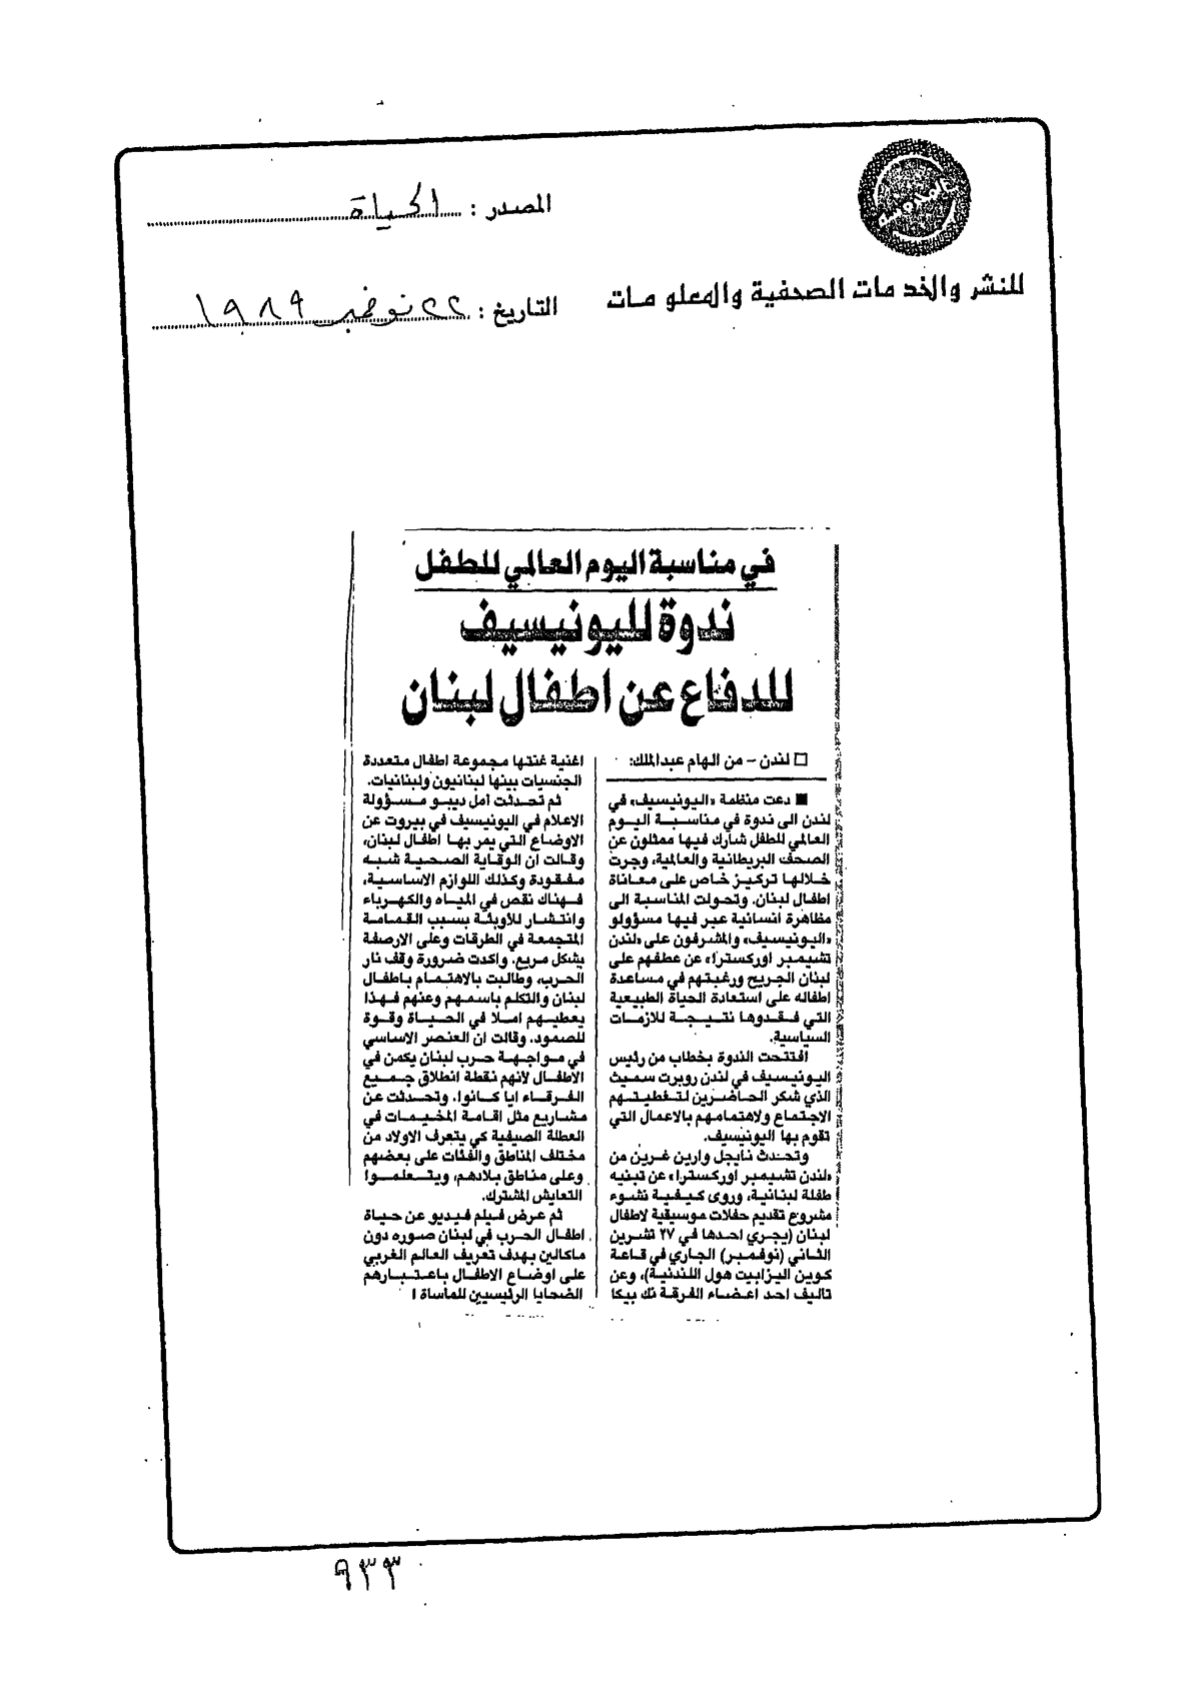 المصدر : الحياة
للنشر والخدمات الصحفية والمعلومات
التاريخ : ٢٢ نوفمبر ١٩٨٩
في مناسبة اليوم العالمي للطفل
ندوة لليونيسيف
للدفاع عن اطفال لبنان
□ لندن – من الهام عبدالملك:
■ دعت منظمة «اليونيسيف» في
لندن الى ندوة في مناسبة اليوم
العالمي للطفل شارك فيها ممثلون عن
الصحف البريطانية والعالمية، وجرت
خلالها تركيز خاص على معاناة
اطفال لبنان. وتحولت المناسبة الى
مظاهرة انسانية عبر فيها مسؤولو
«اليونيسيف» والمشرفون على «لندن
تشيمبر اوركسترا» عن عطفهم على
لبنان الجريح ورغبتهم في مساعدة
اطفاله على استعادة الحياة الطبيعية
التي فقدوها نتيجة للازمات
السياسية.
افتتحت الندوة بخطاب من رئيس
اليونيسيف في لندن روبرت سميث
الذي شكر الحاضرين لتغطيتهم
الاجتماع ولاهتمامهم بالاعمال التي
تقوم بها اليونيسيف.
وتحدث نايجل وارين غرين من
«لندن تشيمبر اوركسترا» عن تبنيه
طفلة لبنانية، وروى كيفية نشوء
مشروع تقديم حفلات موسيقية لاطفال
لبنان (يجري احدها في ٢٧ تشرين
الثاني (نوفمبر) الجاري في قاعة
كوين اليزابيت هول اللندنية)، وعن
تاليف احد اعضاء الفرقة نك بيكا
اغنية غنتها مجموعة اطفال متعددة
الجنسيات بينها لبنانيون ولبنانيات.
ثم تحدثت امل ديبو مسؤولة
الاعلام في اليونيسيف في بيروت عن
الاوضاع التي يمر بها اطفال لبنان،
وقالت ان الوقاية الصحية شبه
مفقودة وكذلك اللوازم الاساسية،
فهناك نقص في المياه والكهرباء
وانتشار للأوبئة بسبب القمامة
المتجمعة في الطرقات وعلى الارصفة
بشكل مريع. واكدت ضرورة وقف نار
الحرب، وطالبت بالاهتمام باطفال
لبنان والتكلم باسمهم وعنهم فهذا
يعطيهم املا في الحياة وقوة
للصمود. وقالت ان العنصر الاساسي
في مواجهة حرب لبنان يكمن في
الأطفال لأنهم نقطة انطلاق جميع
الفرقاء ايا كانوا. وتحدثت عن
مشاريع مثل اقامة المخيمات في
العطلة الصيفية كي يتعرف الاولاد من
مختلف المناطق والفئات على بعضهم
وعلى مناطق بلادهم، ويتعلموا
التعايش المشترك.
ثم عرض فيلم فيديو عن حياة
اطفال الحرب في لبنان صوره دون
ماكالين بهدف تعريف العالم الغربي
على اوضاع الاطفال باعتبارهم
الضحايا الرئيسيين للمأساة ا
٩٣٣